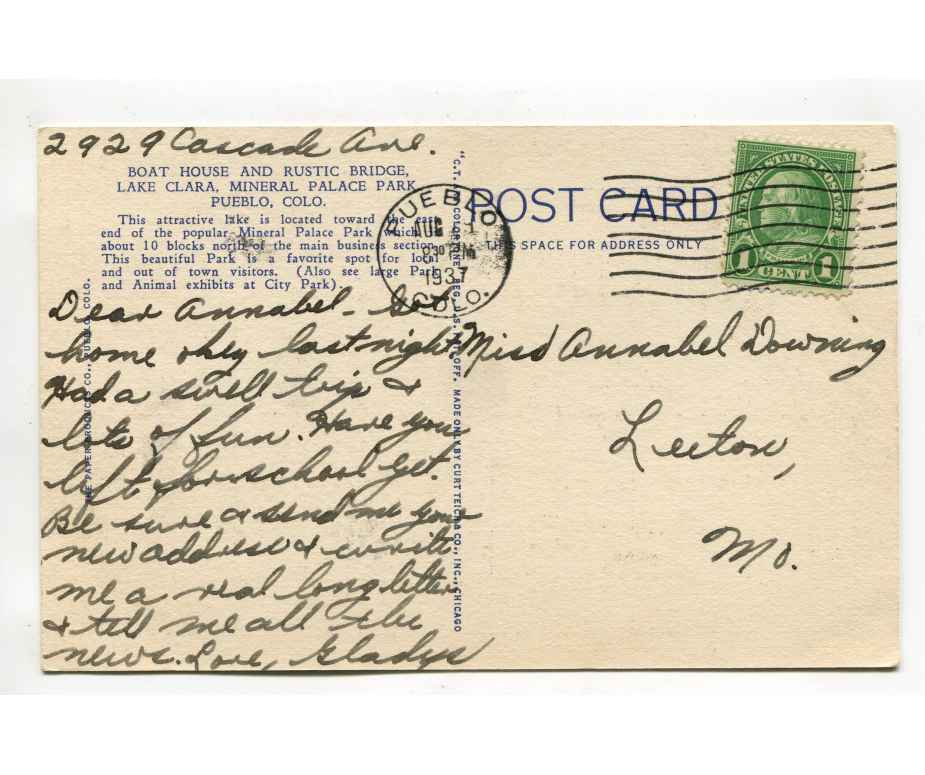 2929 Cascade Ave.
BOAT HOUSE AND RUSTIC BRIDGE,
LAKE CLARA, MINERAL PALACE PARK
PUEBLO, COLO.
This attractive lake is located toward the east
end of the popular Mineral Palace Park which
about 10 blocks north of the main business section.
This beautiful Park is a favorite spot for local
and out of town visitors. (Also see large Park
and Animal exhibits at City Park).
Dear Annabel - Got
home okey last night
Had a swell trip &
lots of fun. Have you
left for school yet.
Be sure & send me your
new address & write
me a real long letter
& tell me all the
news. Love, Gladys
PAPER PRODUCTS CO., PUEBLO, COLO.
"C.T. COLORTONE" REG. U.S. PAT. OFF. MADE ONLY BY CURT TEICH & CO., INC., CHICAGO
POST CARD
THIS SPACE FOR ADDRESS ONLY
PUEBLO
AUG
30 PM
1937
COLO.
UNITED STATES POSTAGE
FRANKLIN
1 CENT 1
Miss Annabel Downing
Leeton,
Mo.